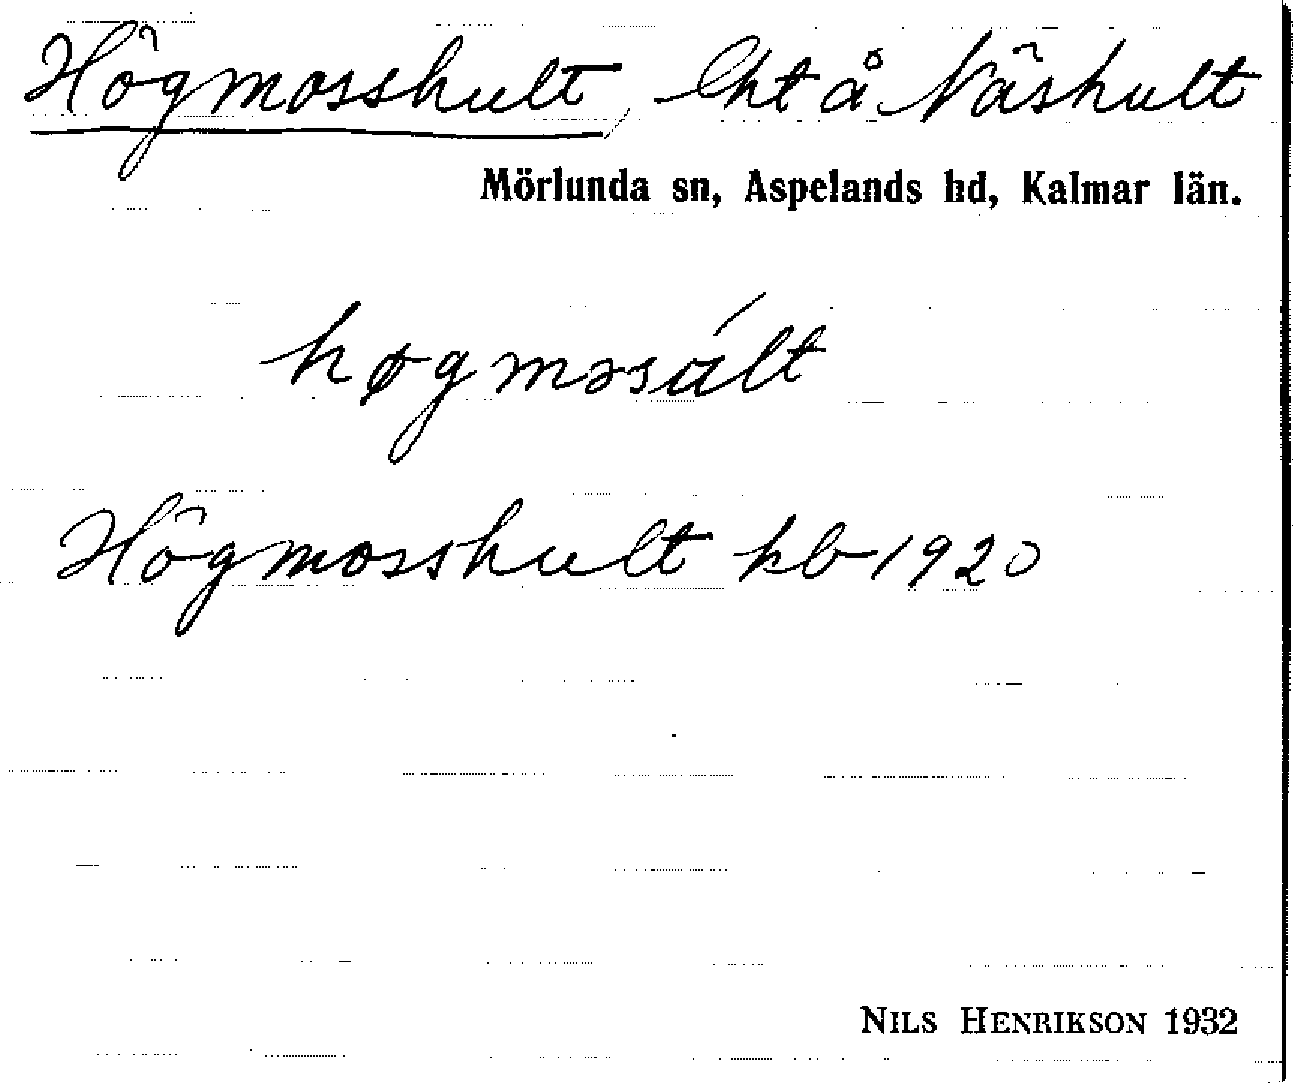 Högmosshult, lht å Näshult
Mörlunda sn, Aspelands hd, Kalmar län.
høgmɔsúlt
Högmosshult kb 1920
NILS HENRIKSON 1932